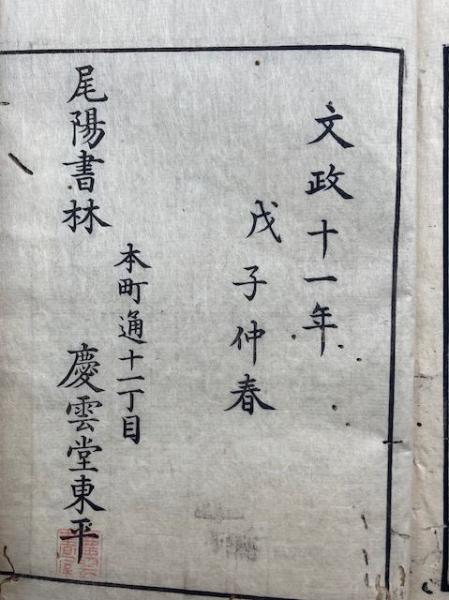 文政十一年
戊子仲春
本町通十一丁目
尾陽書林 慶雲堂東平